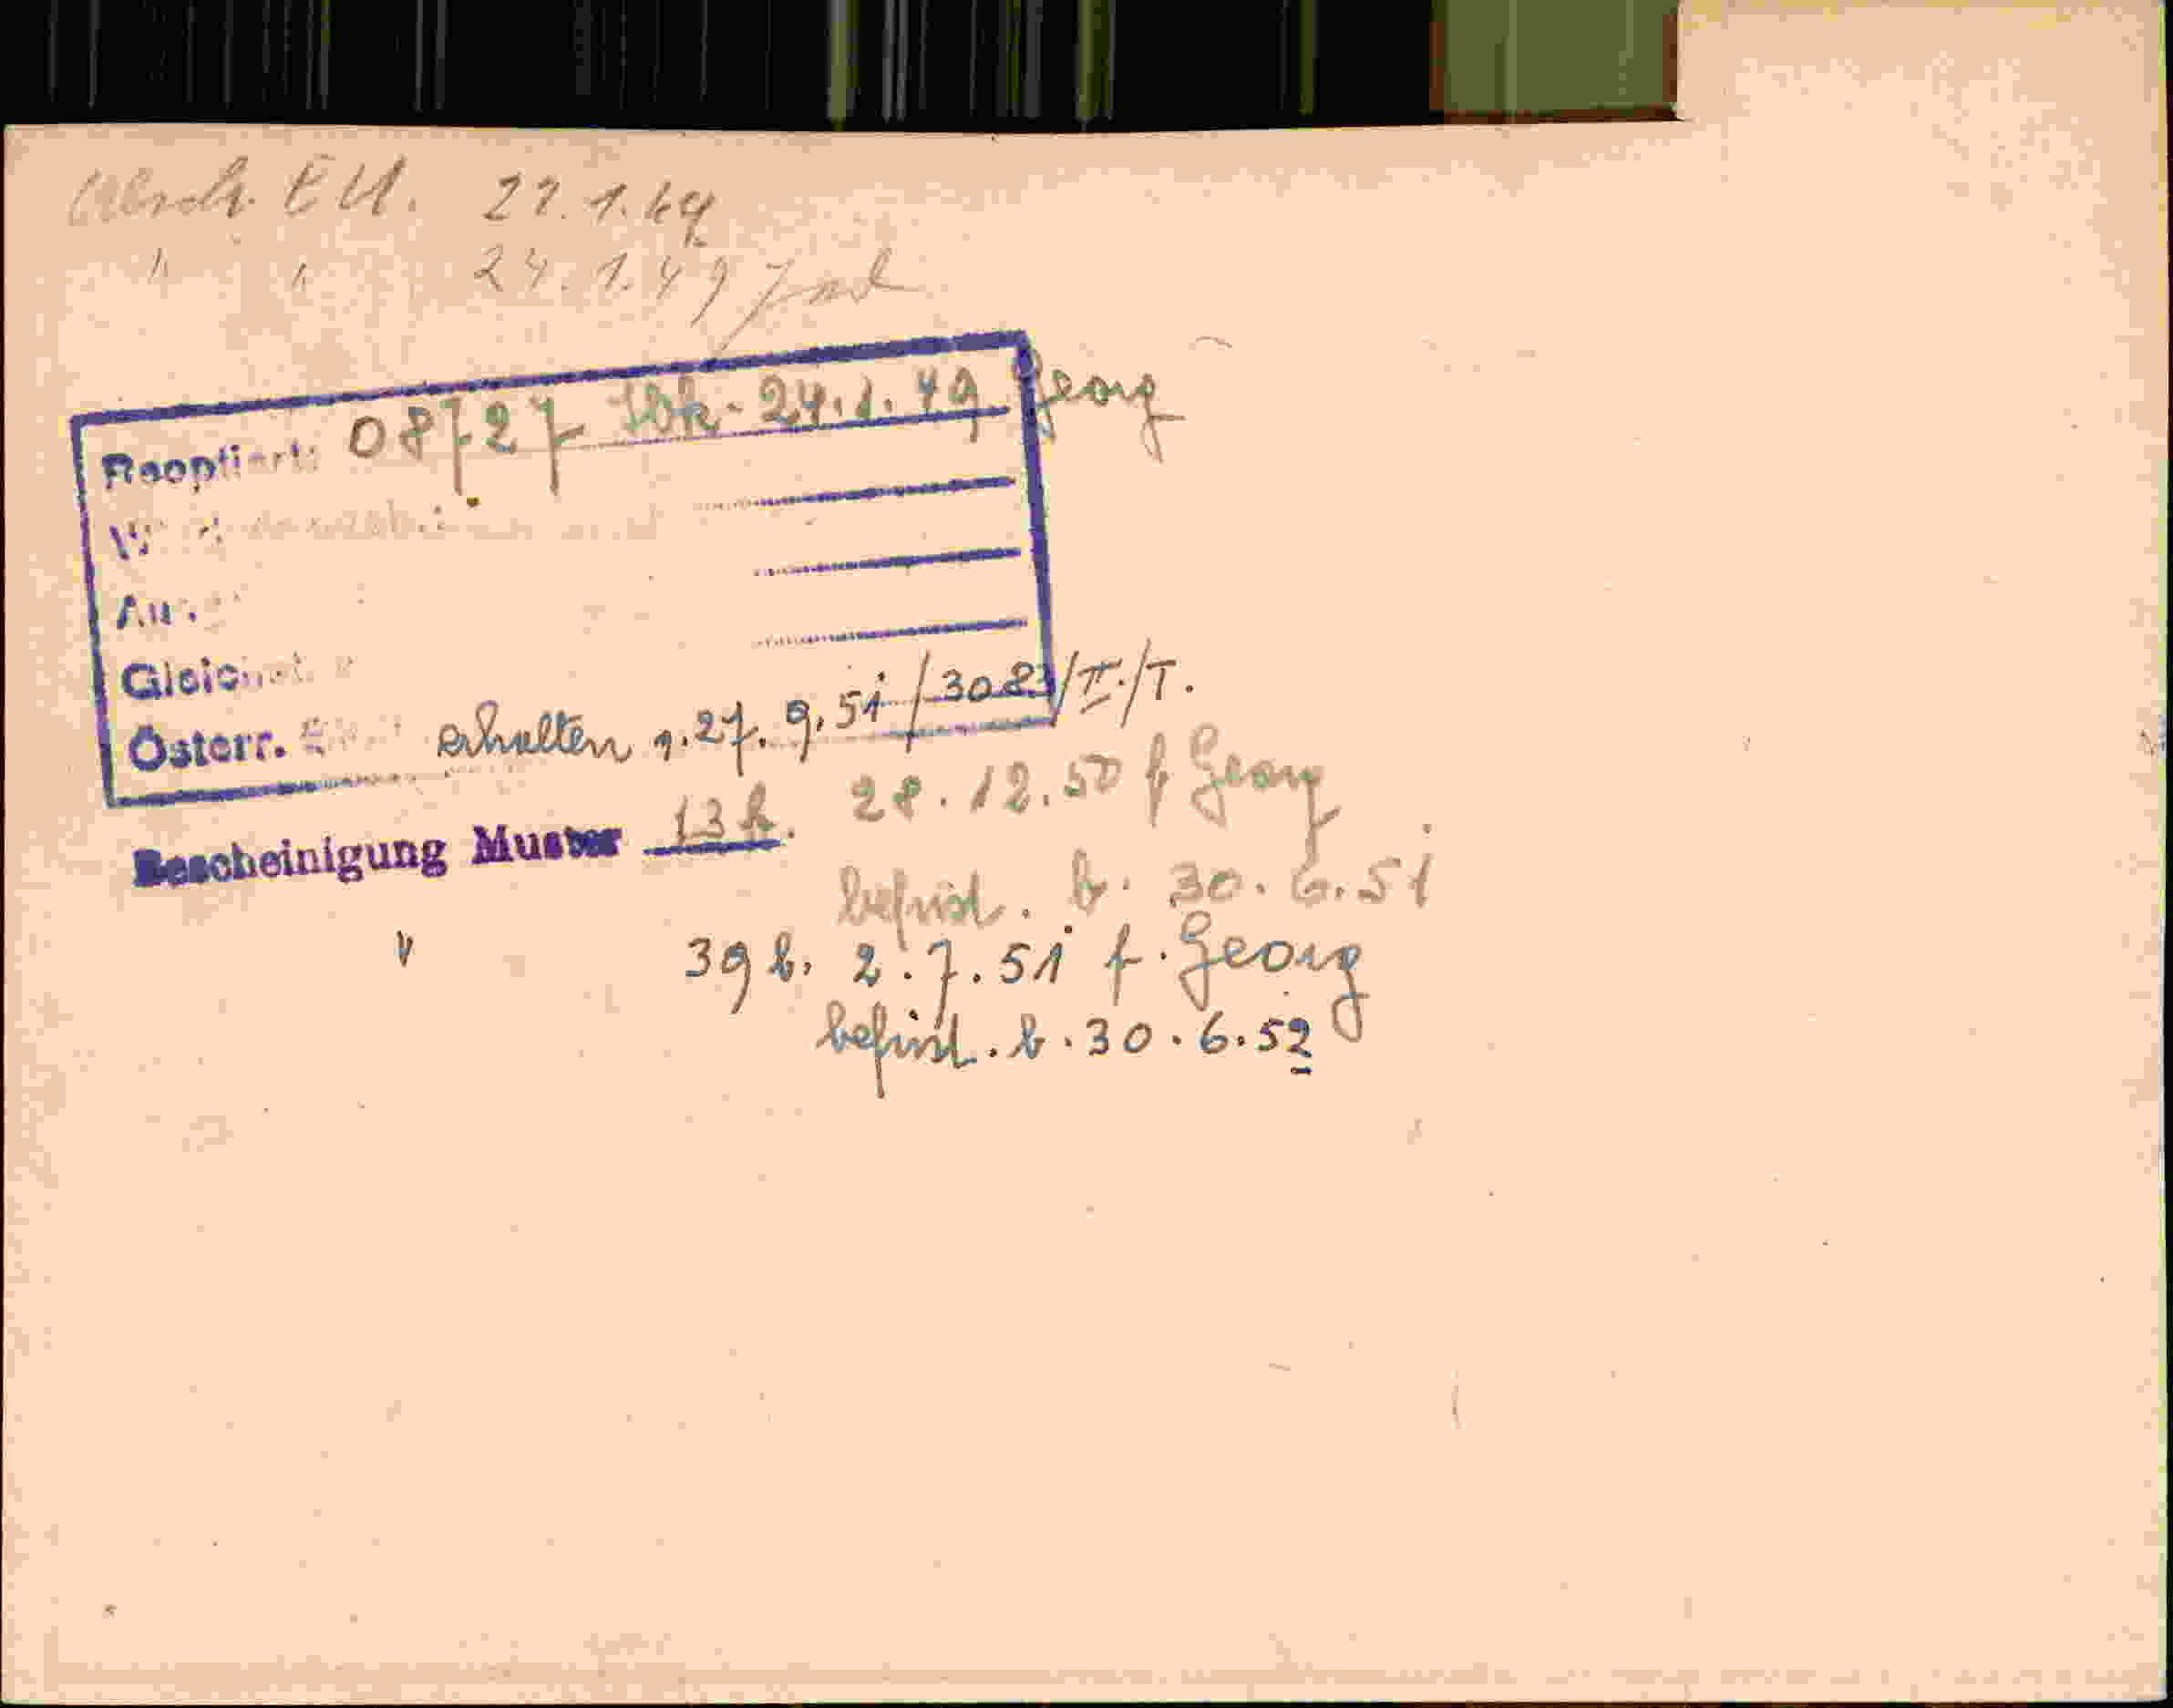 Absch. EU. 22.1.49
" " 24.1.49
Reoptiert: 08727 24.1.49 Georg
Österr. erhalten 27.9.51/3083/II./T.
Bescheinigung Muster 13b. 28.12.50 f Georg
befrist. b. 30.6.51
" 39b. 2.7.51 f. Georg
befrist. b. 30.6.52